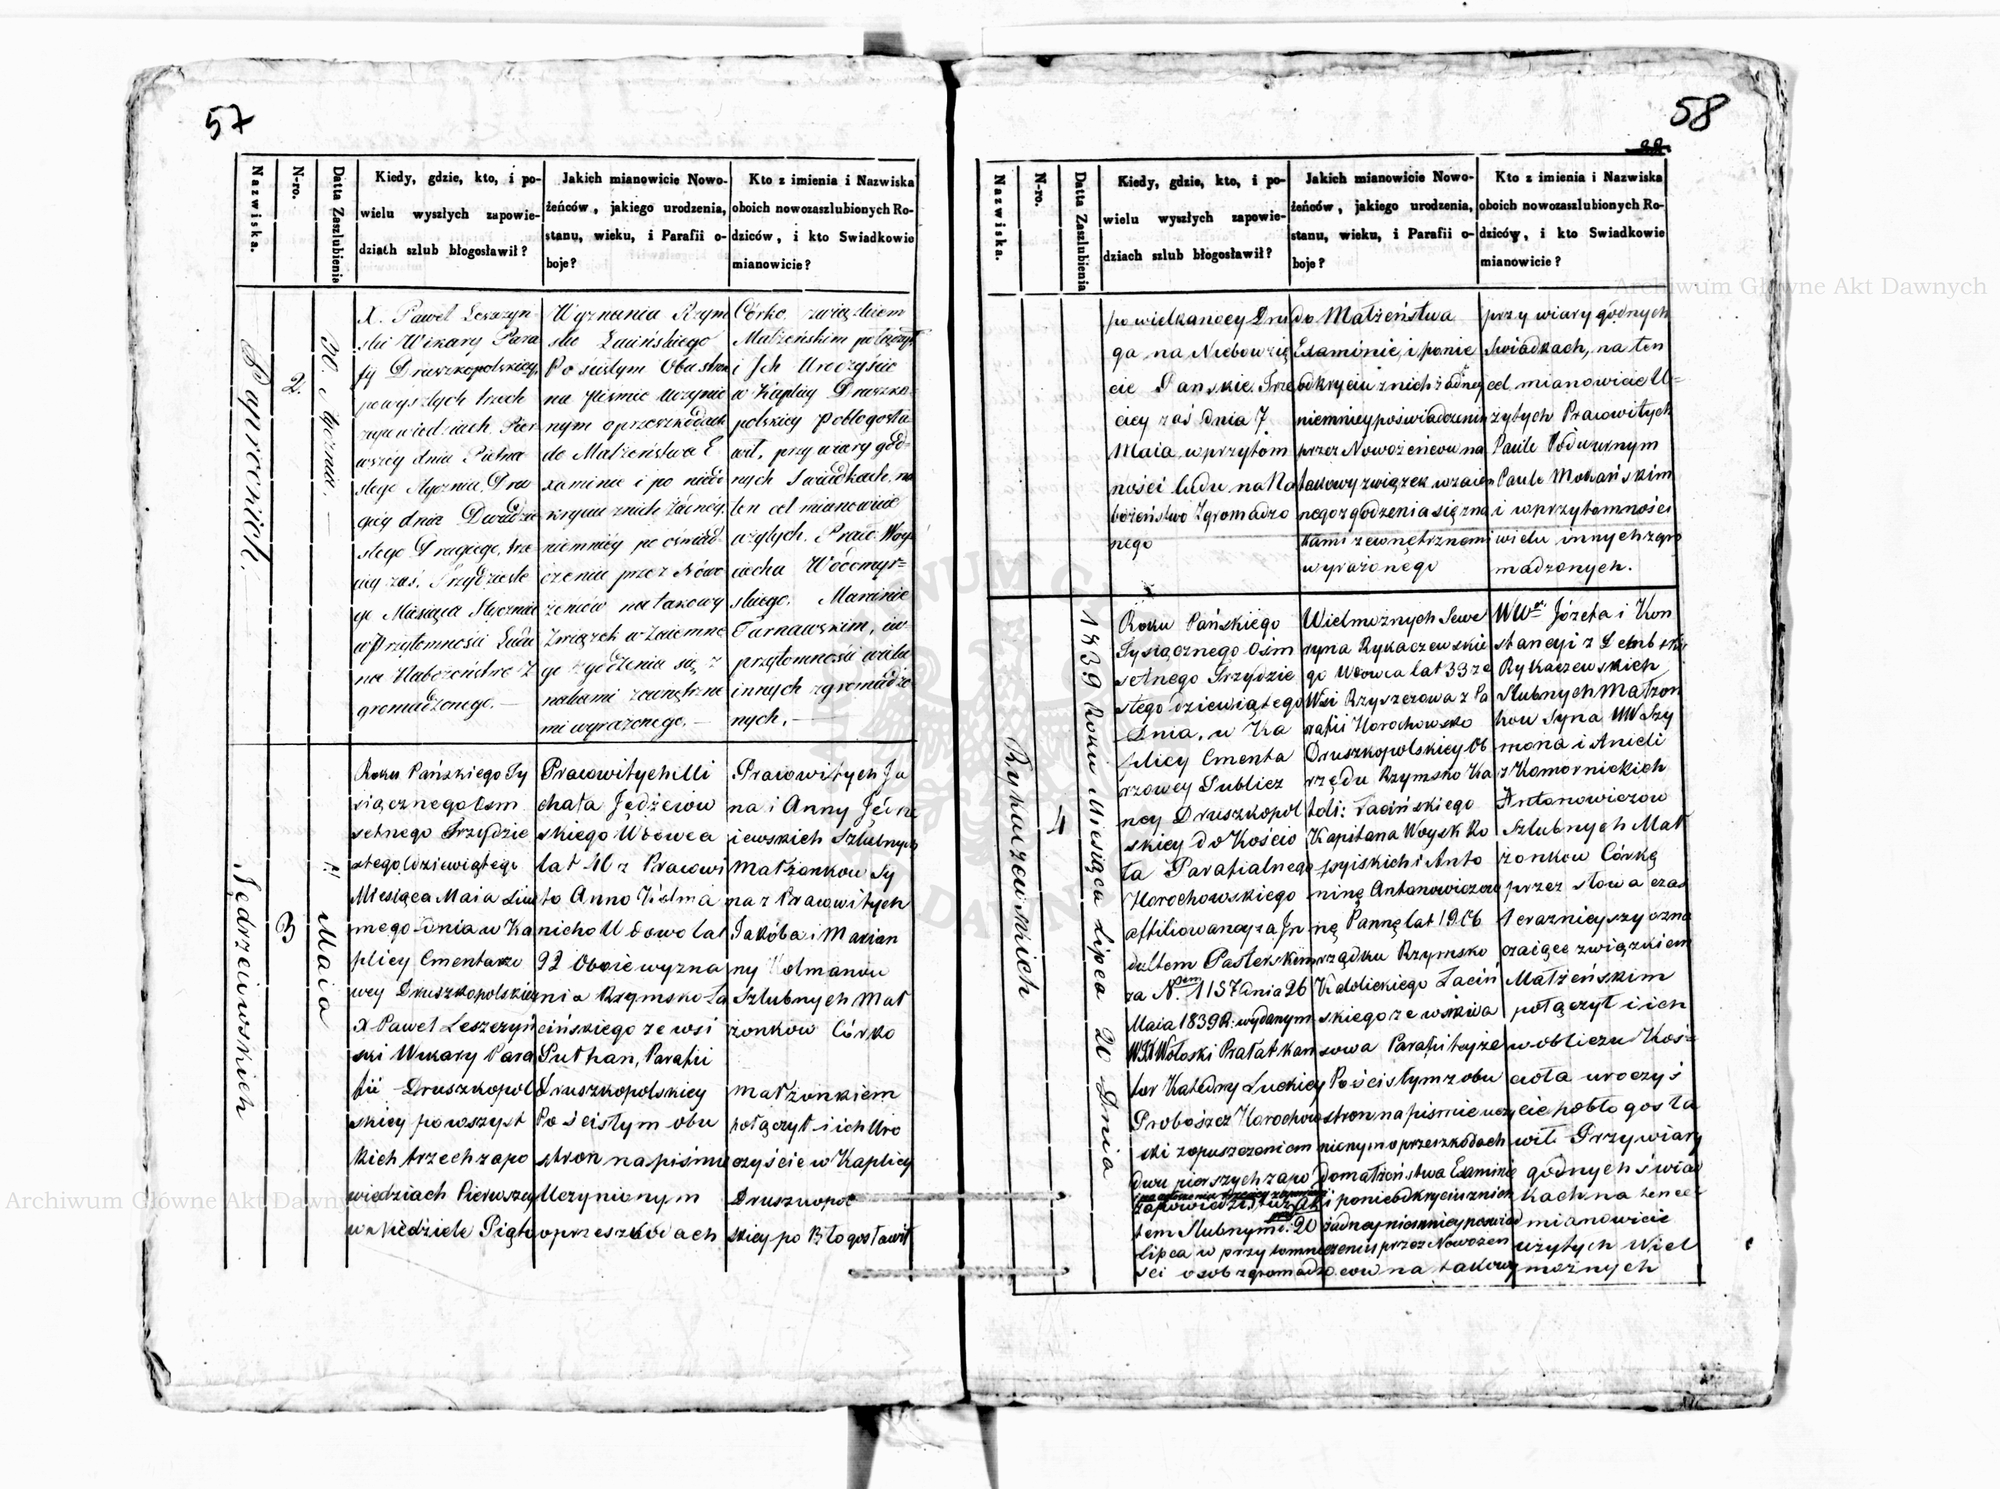 57
Nazwiska.
N-ro.
Datta Zaszlubienia
Kiedy, gdzie, kto, i po-
wielu wyszłych zapowie-
dziach szlub błogosławił?
Jakich mianowicie Nowo-
żeńców, jakiego urodzenia,
stanu, wieku, i Parafii o-
boje?
Kto z imienia i Nazwiska
oboich nowozaszlubionych Ro-
dziców, i kto Swiadkowie
mianowicie?
2.
X. Paweł Leszczyń
ski Wikary Para
fij Druszkopolskiey,
powyszłych trzech
zapowiedziach Pier
wszey dnia Pietna
stego Stycznia, Dru
giey dnia Dwudzie
stego Drugiego, trze
ciey zaś Trzydzieste
go Miesiąca Stycznia
w Przytomnosci Ludu
na Nabożenstwo Z
gromadzonego.
Wyznania Rzym
sko Łacińskiego
Po scisłym Obustron
na Pismie uczynio
nym oprzeszkodach
do Małżeństwa E
xaminie i po nieod
kryciu znich żadney
niemniey po oświad
czeniu przez Nowo
żeńców na takowy
Związek wzaiemne
go zgodzenia się z
nakami zewnętrzne
mi wyrażonego.
Córko związkiem
Małżeńskim połączył
i Ich Uroczyście
w Kaplicy Druszko
polskiey pobłogosła
wił, przy wiary god-
nych Swiadkach, na
ten cel mianowicie
użytych. Praco Woy
ciecha
Marcinie
Tarnawskim, i w
przytomności wielu
innych zgromadzo
nych.
3
11 Maia
Jędrzeiewskich
Roku Pańskiego Ty
siącznego Osm
setnego Trzydzie
stego dziewiątego
Miesiąca Maia
nego Dnia w Ka
plicy Cmentarzo
wey Druszkopolskiey
X Paweł Leszczyń
ski Wikary Para
fii Druszkopol
skiey powszyst
kich trzech zapo
wiedziach Pierwszey
w Niedziele Piątą
Pracowitych Mi
chała Jędżeiew
skiego Wdowca
lat 40 z Pracowi
to Anno Kolma
nicho Wdowo lat
22 Oboie wyzna
nia Rzymsko Ła
cińskiego ze wsi
Puthan, Parafii
Druszkopolskiey
Po scisłym obu
stron na piśmie
Uczynionym
oprzeszkodach
Pracowitych Ja
na i Anny Jędrze
iewskich Szlubnych
Małżonkow Sy
na z Pracowitych
Jakóba i Marian
ny Kolmanow
Szlubnych Mał
żonkow Córko
małżonkiem
połączył i ich Uro
czyście w Kaplicy
Druszkopol
skiey po Błogosławił
58
Nazwiska.
N-ro.
Datta Zaszlubienia
Kiedy, gdzie, kto, i po-
wielu wyszłych zapowie-
dziach szlub błogosławił?
Jakich mianowicie Nowo-
żeńców, jakiego urodzenia,
stanu, wieku, i Parafii o-
boje?
Kto z imienia i Nazwiska
oboich nowozaszlubionych Ro-
dziców, i kto Swiadkowie
mianowicie?
powielkanocy Dru
ga na Niebowzię
cie Panskie Trze
ciey zaś dnia 7
Maia w przytom
ności ludu na Na
bożeństwo Zgromadzo
nego
do Małżeństwa
Examinie, i ponie
odkryciu znich żadney
niemniey poświadczeniu
przez Nowożeńcow na
takowy związek wzaiem
nego zgodzenia się zna
kami zewnętrznemi
wyrażonego
przy wiary godnych
Swiadkach, na ten
cel mianowicie U-
żytych Pracowitych
Pawle
Pawle Mokańskim
i w przytomności
wielu innych zgro
madzonych.
4
1839 Roku Miesiąca Lipca 20 Dnia
Rykaczewskich
Roku Pańskiego
Tysiącznego Osim
setnego Trzydzie
stego dziewiątego
Dnia, w Ka
plicy Cmenta
rzowey Publicz
ney Druszkopol
skiey do Kościo
ła Parafialnego
Horochowskiego
affiliowaney za In
dultem Pasterskim
za N. 1157 dnia 26
Maia 1839 R. wydanym
WX Wołoski Prałat Kan
tor Katedry Łuckiey
Proboszcz Horochow
ski zopuszczeniem
dwu pierszych zapo
tem Slubnym d. 20
Lipca w przytomno
sci osob zgromadzo
Wielmożnych Sewe
ryna Rykaczewskie
go Wdowca lat 33 ze
Wsi Rzyszczowa z Pa
rafii Horochowsko
Druszkopolskiey Ob
rzędu Rzymsko Ka
toli: Łacińskiego
Kapitana Woysk Ro
ssyiskich i Anto
ninę Antonowiczow
nę Pannę lat 19 Ob
rządku Rzymsko
Katolickiego Łaciń
skiego ze wsi
sowa Parafii teyże
Po ścisłym z obu
stron na piśmie uczy
nionym o przeszkodach
do małżeństwa Examinie
i ponieodkryciu znich
żadney niemniey poświad
czeniu przez Nowożen
cow na takowy
WW Józefa i Kon
stancyi z Dembskich
Rykaczewskich
Slubnych Małżon
kow Syna WW Szy
mona i Anieli
z Komornickich
Antonowiczow
Szlubnych Mał
żonkow Córkę
przez słowa czas
teraznieyszy ozna
czaiące związkiem
Małżeńskim
połączył i ich
w obliczu Koś-
cioła uroczyś
cie pobłogosła
wił Przy wiary
godnych świad
kach na ten cel
mianowicie
użytych Wiel
możnych
Archiwum Główne Akt Dawnych
Archiwum Główne Akt Dawnych